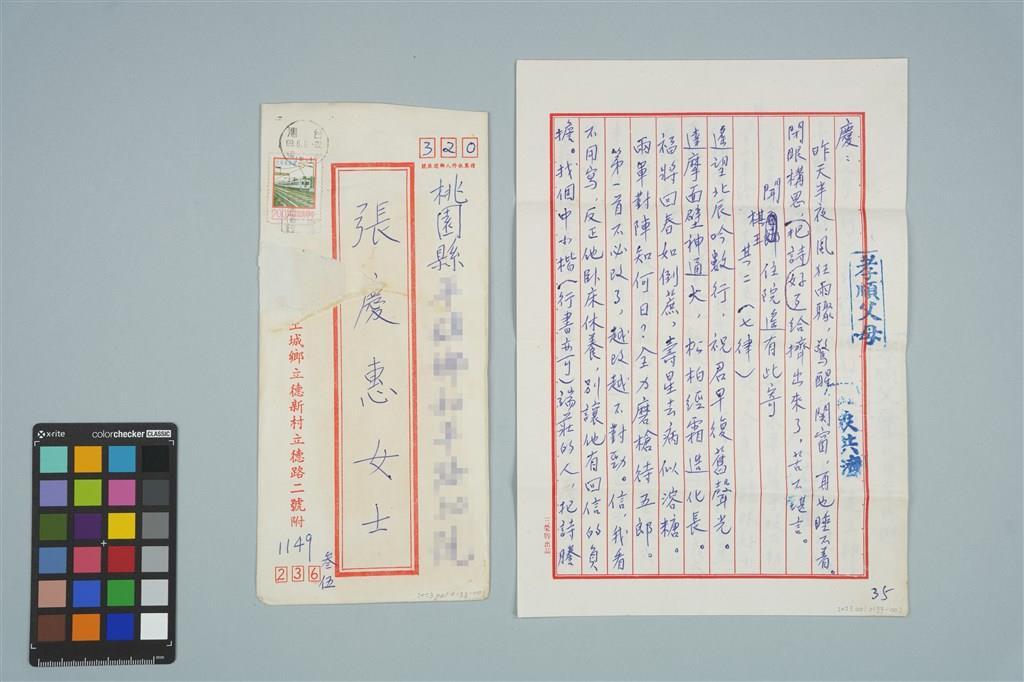 320
積萬收件人郵遞區號
桃園縣
張慶惠女士
土城鄉立德新村立德路二號附
1149
叁伍
236
200
2023.001.0133-001
慶：
昨天半夜，風狂雨驟，驚醒，関窗，再也睡不着。
閉眼構思，把詩（好歹給擠出來了，苦不堪言。
聞棋王住院遙有此寄
其二（七律）
遙望北辰吟數行，祝君早復舊聲光。
達摩面壁神通大，松柏經霜造化長。
福將回春如倒蔗，壽星去病似溶糖。
兩軍對陣知何日？全力磨槍待五郎。
第一首不必改了，越改越不對勁。信，我看
不用寫，反正他臥床休養，別讓他有回信的負
擔。找個中小楷（行書亦可）端莊的人，把詩謄
孝順父母
三榮牌出品
35
2023.001.0133-002
x-rite
colorchecker CLASSIC